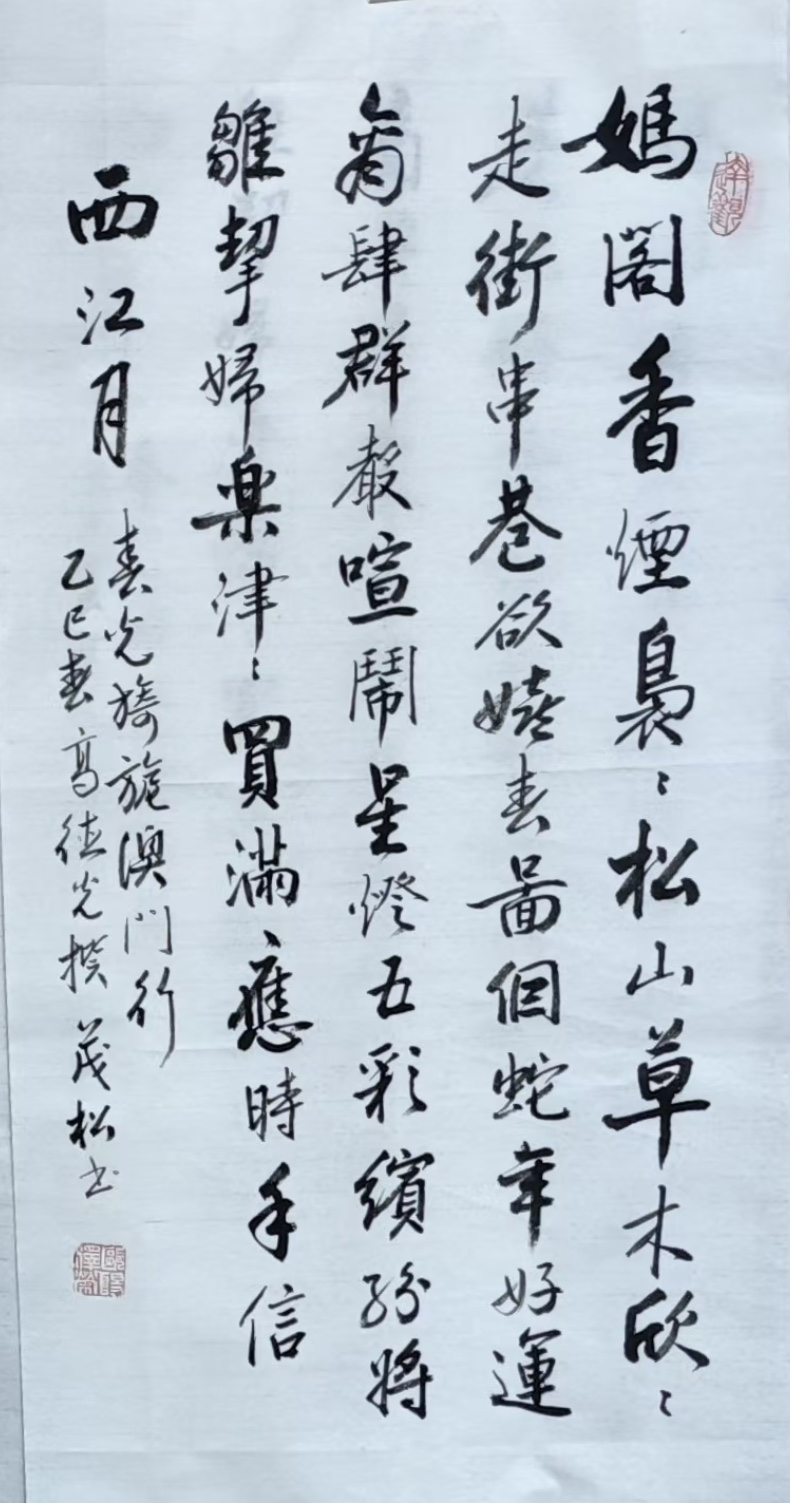 媽閣香煙裊〻松山草木欣〻
走街串巷欲嬉春啚個蛇年好運
商肆群聲喧鬧星燈五彩繽紛將
雛挈婦樂津〻買滿應時手信
西江月
春光旖旎澳門行
乙巳春高德光撰 茂松书